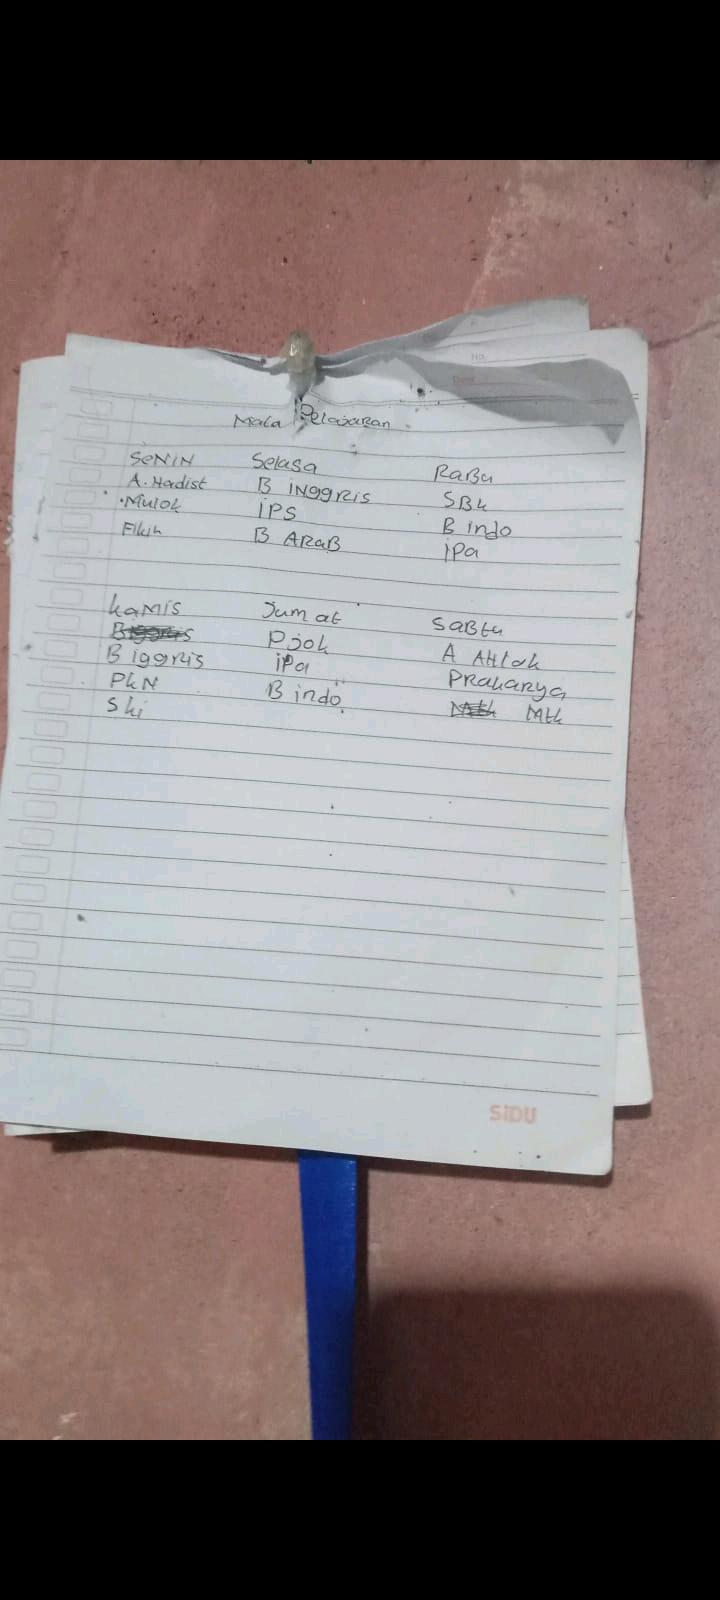 No.
Date
Mata Pelajaran
SeNiN Selasa RaBu
A. Hadist B iNggris SBk
Mulok iPS B indo
Fikih B ARaB iPa
kaMis Jum at SaBtu
B iggris Pjok A AHlak
PkN iPa PRakarya
Ski B indo Mtk
SiDU